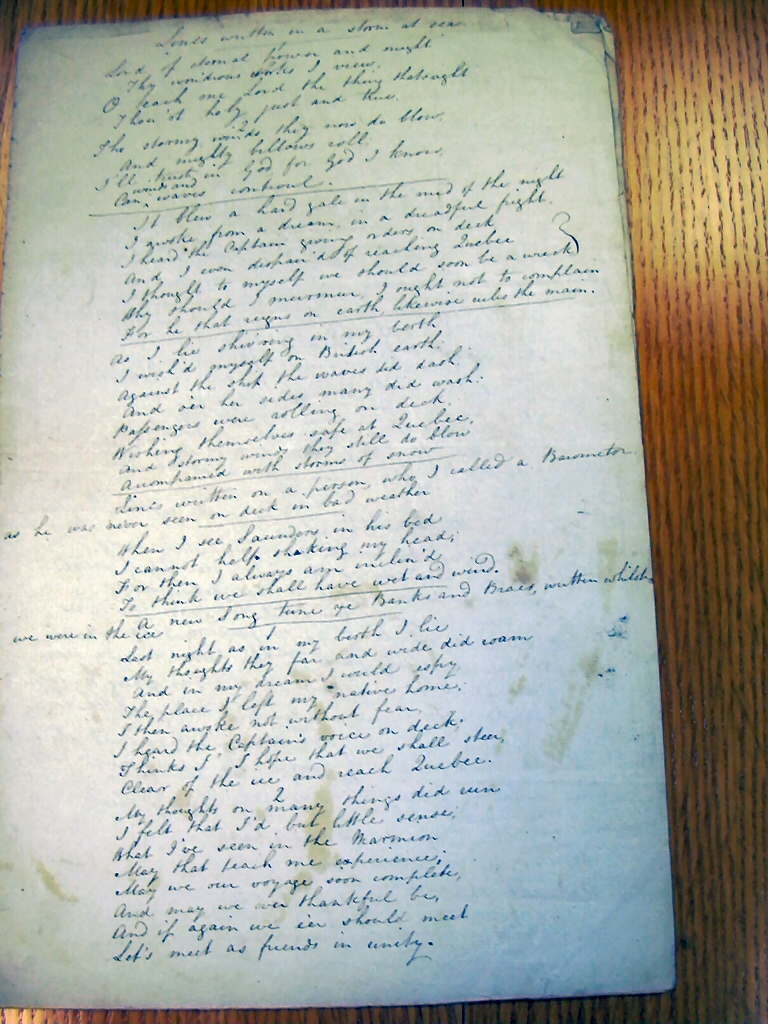 Lines written in a storm at sea
Lord of eternal power and might
Thy wondrous works I view.
O teach me Lord the thing that right
Thou'rt holy just and true.
2
The stormy winds they now do blow,
And mighty billows roll.
I'll trust in God for God I know,
winds and
Can waves controul.
It blew a hard gale in the mid of the night
I awoke from a dream, in a dreadful fright.
I heard the Captain giving orders on deck
And I even despair'd of reaching Quebec
I thought to myself we should soon be a wreck
Why should I murmur, I ought not to complain
For he that reigns on earth likewise rules the main.
As I lie shiv'ring in my berth
I wish'd myself on British earth.
Against the ship the waves did dash
And o'er her sides many did wash.
Passengers were rolling on deck.
Wishing themselves safe at Quebec.
And stormy winds they still do blow
Accompanied with storms of snow
Lines written on a person who I called a Barometor
as he was never seen on deck in bad weather
When I see Saunders in his bed
I cannot help shaking my head;
For then I always am inclin'd
To think we shall have wet and wind.
A new Song tune ye Banks and Braes, written whilst
we were in the ice
1
Last night as in my berth I lie
My thoughts they far and wide did roam
And in my dream I could espy
The place I left my native home;
I then awoke not without fear,
I heard the Captain's voice on deck.
Thinks I, I hope that we shall steer,
Clear of the ice and reach Quebec.
2
My thoughts on many things did run
I felt that I'd but little sense;
What I've seen in the Marmion
May that teach me experience;
May we our voyage soon complete,
And may we ever thankful be,
And if again we e'er should meet
Let's meet as friends in unity.